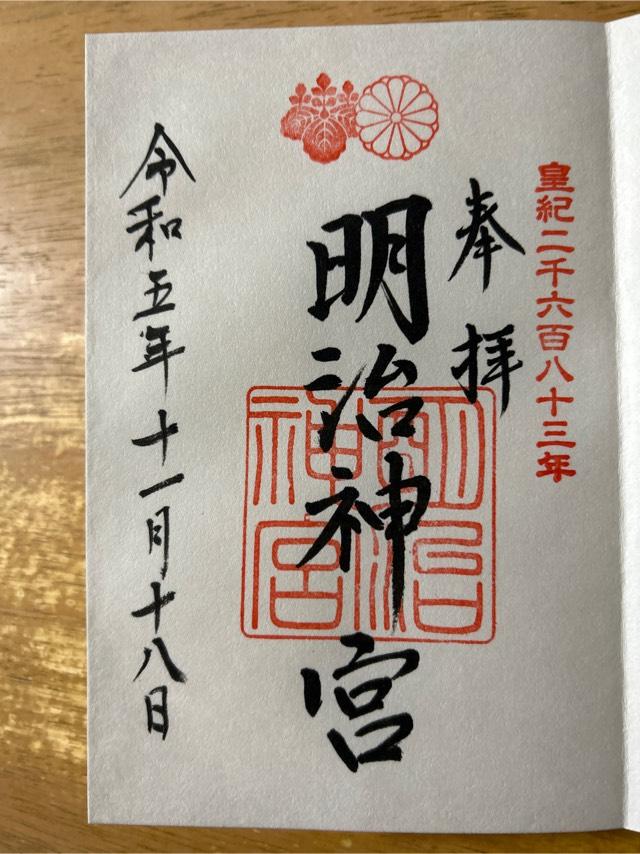 皇紀二千六百八十三年
奉拝
明治神宮
明治神宮
令和五年十一月十八日